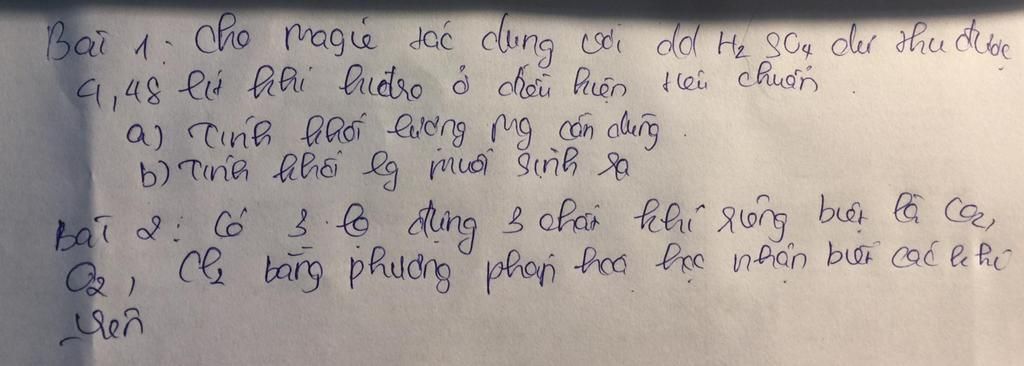 Bài 1: Cho magiê tác dụng với dd H₂SO₄ dư thu được
4,48 lít khí hiđro ở điều kiện tiêu chuẩn.
a) Tính khối lượng Mg cần dùng.
b) Tính khối lg muối sinh ra
Bài 2: Có 3 lọ đựng 3 chất khí riêng biệt là CO₂,
O₂, Cl₂ bằng phương pháp hoá học nhận biết các khí
trên